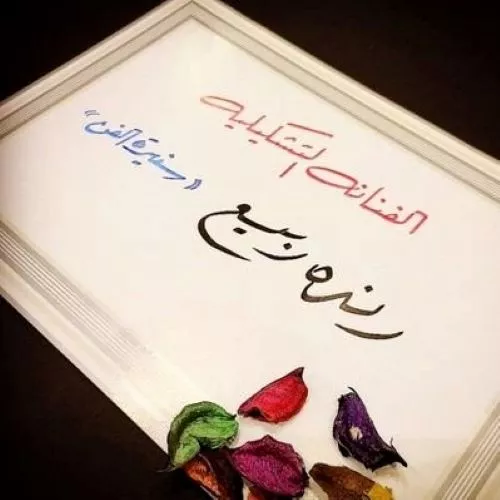 الفنانه التشكيليه
"سفيرة الفن"
رنده ربيع